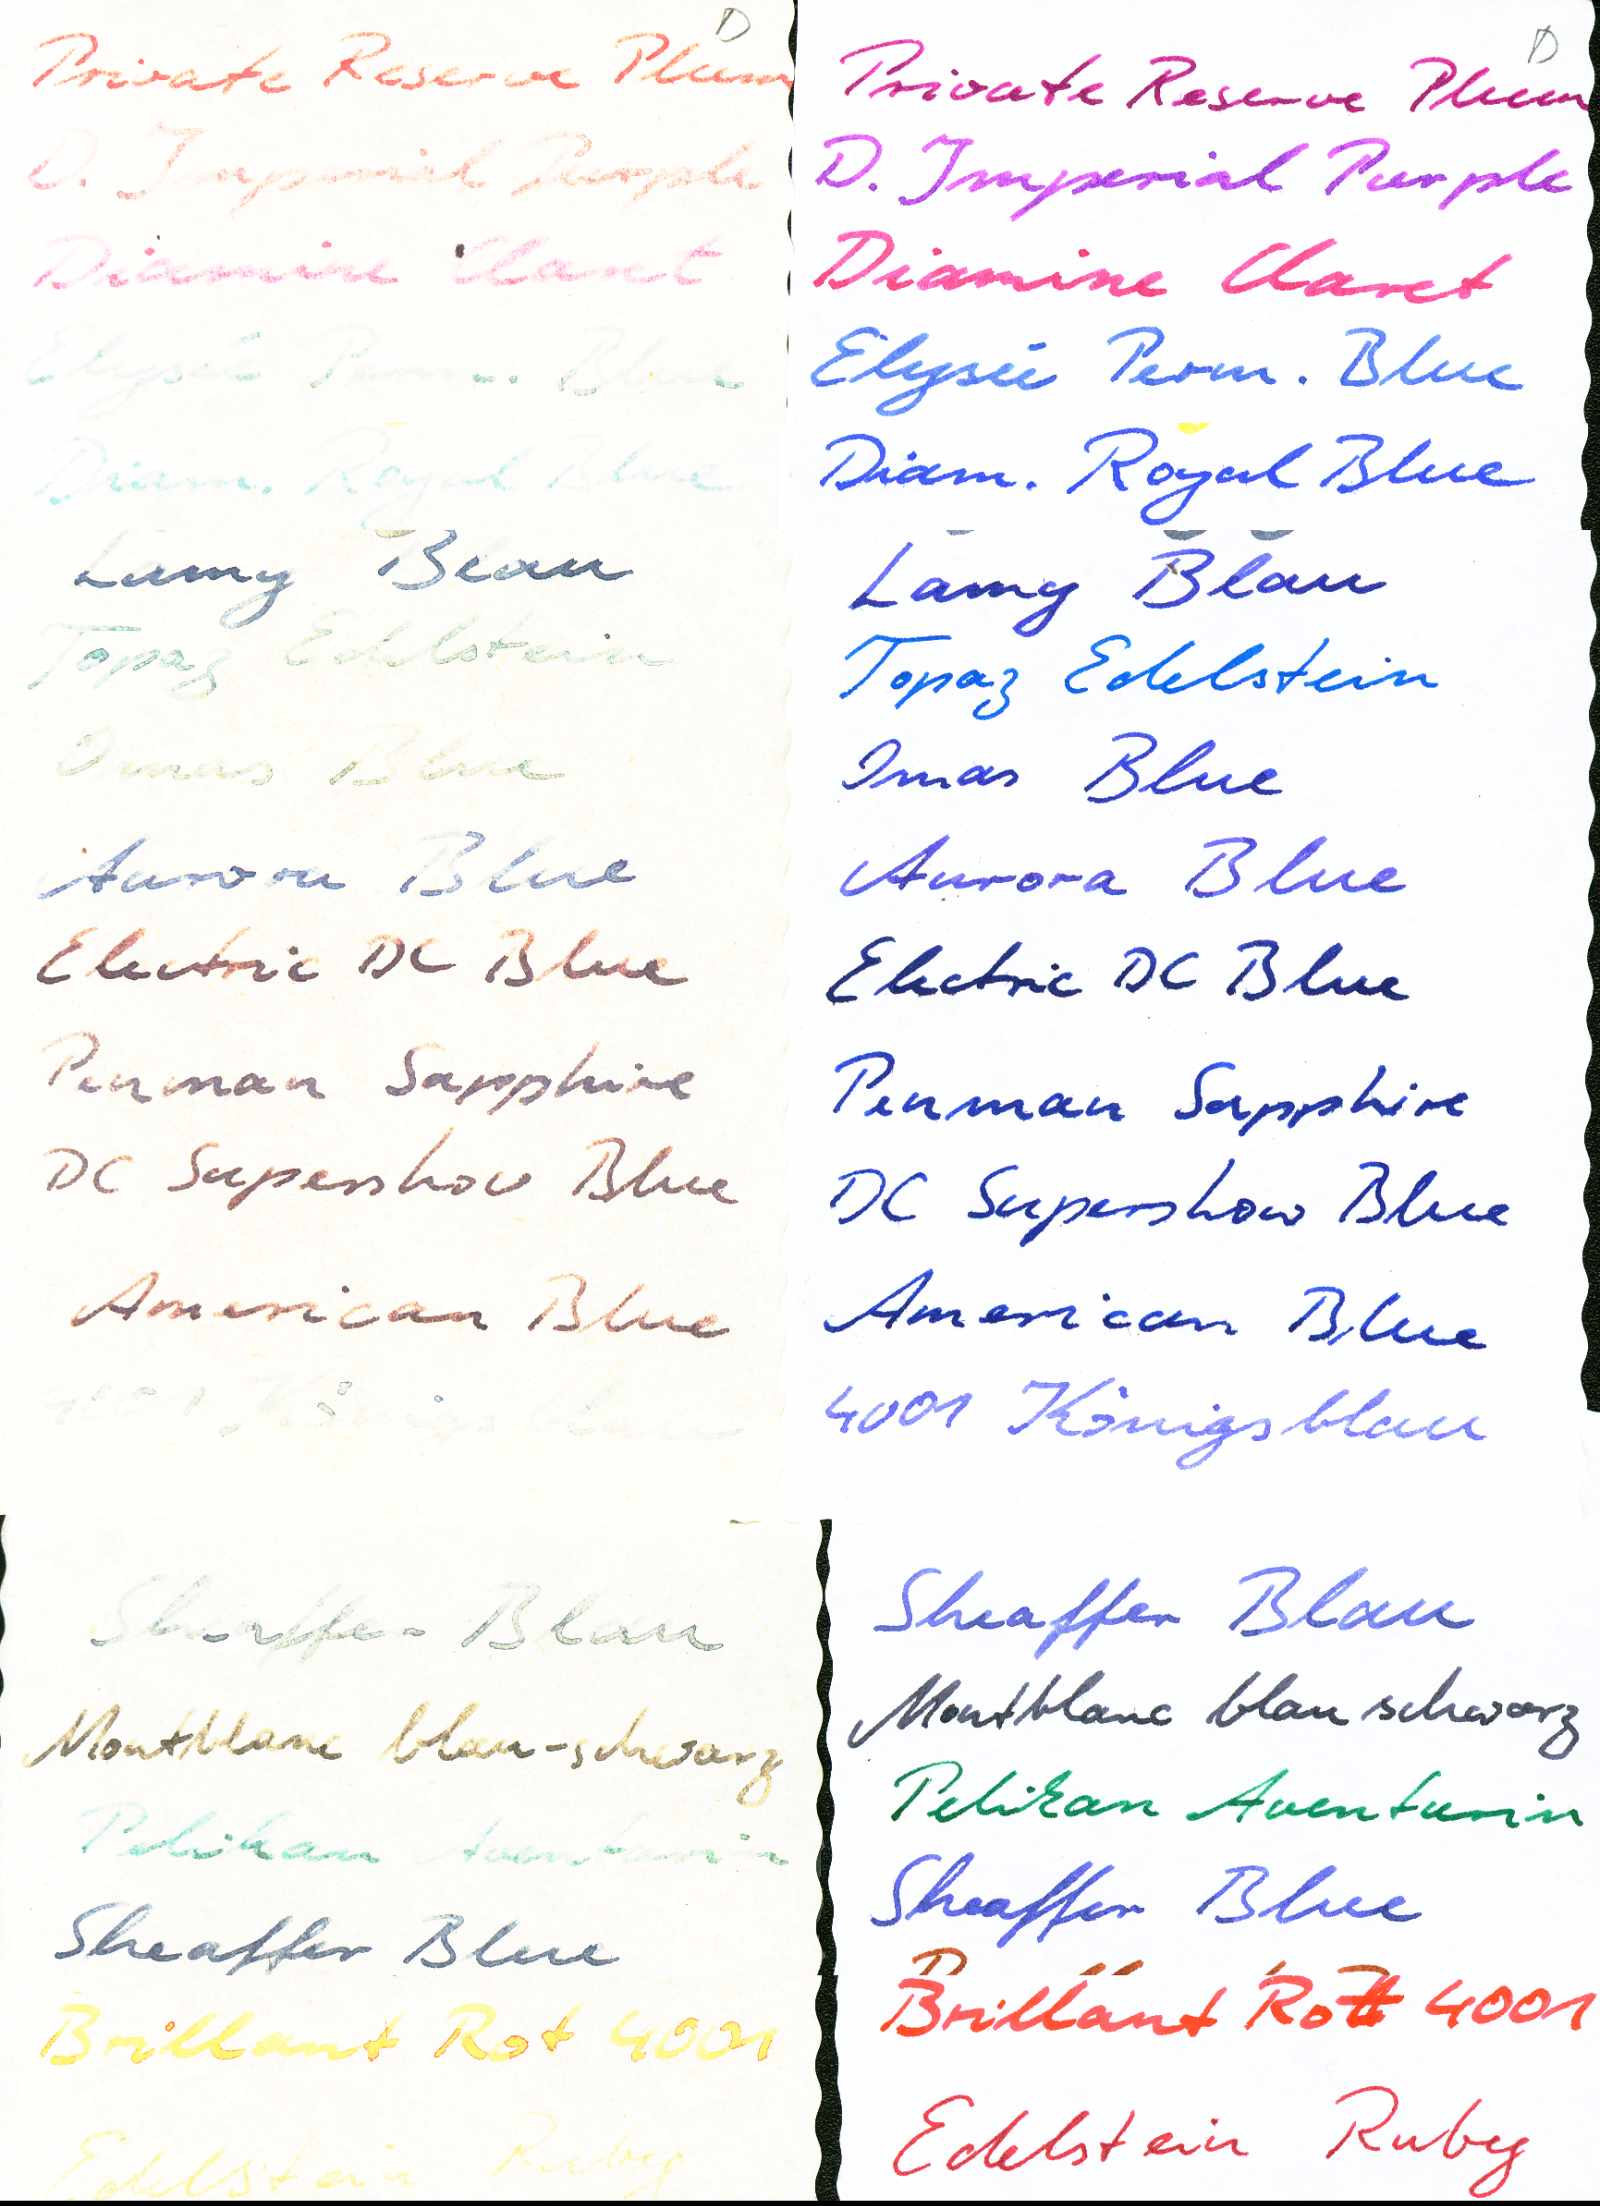 D
Private Reserve Plum
D. Imperial Purple
Diamine Claret
Elysée Perm. Blue
Diam. Royal Blue
Lamy Blau
Topaz Edelstein
Omas Blue
Aurora Blue
Electric DC Blue
Penman Sapphire
DC Supershow Blue
American Blue
4001 Königsblau
Sheaffer Blau
Montblanc blau-schwarz
Pelikan Aventurin
Sheaffer Blue
Brillant Rot 4001
Edelstein Ruby
D
Private Reserve Plum
D. Imperial Purple
Diamine Claret
Elysée Perm. Blue
Diam. Royal Blue
Lamy Blau
Topaz Edelstein
Omas Blue
Aurora Blue
Electric DC Blue
Penman Sapphire
DC Supershow Blue
American Blue
4001 Königsblau
Sheaffer Blau
Montblanc blau schwarz
Pelikan Aventurin
Sheaffer Blue
Brillant Rot 4001
Edelstein Ruby